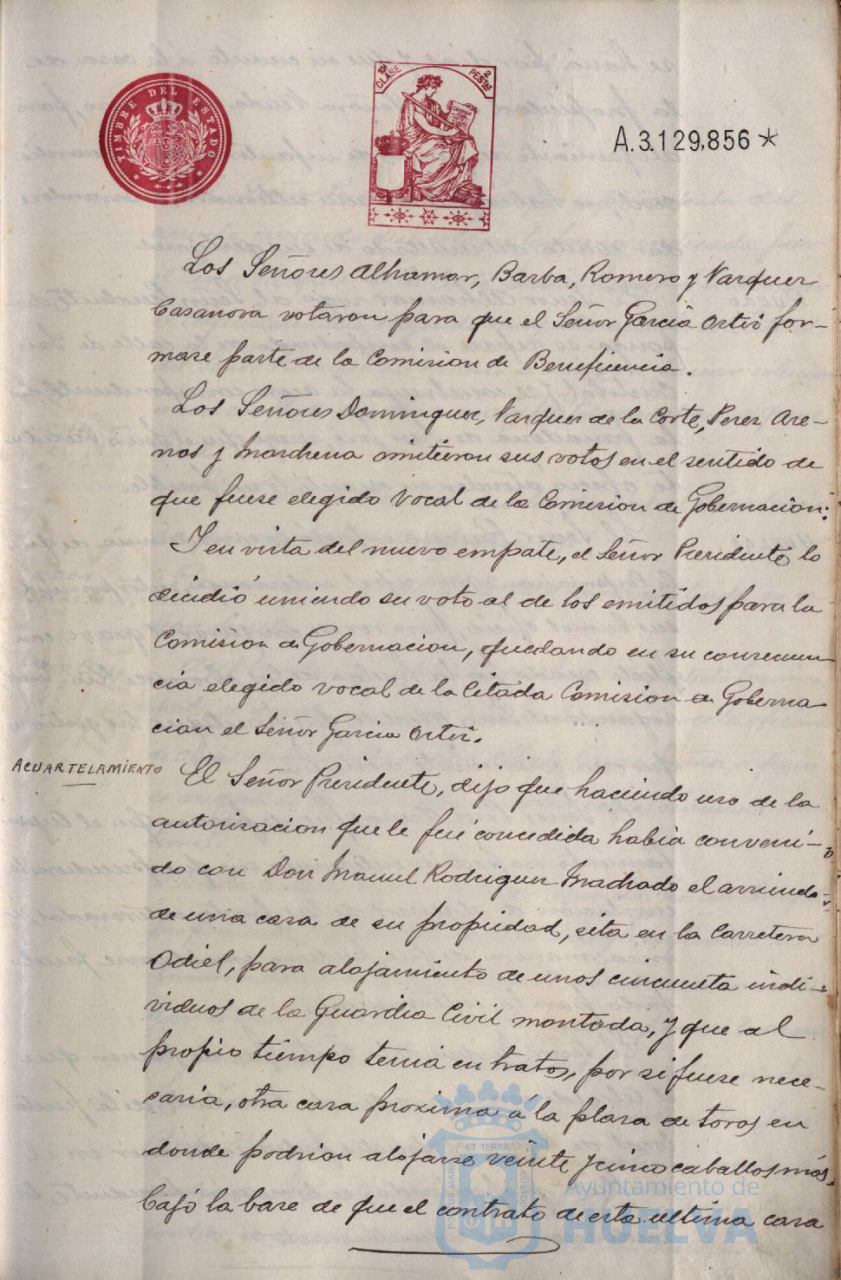 TIMBRE DEL ESTADO
10ª CLASE
2 PESTAS
A.3.129,856 *
Los Señores Alhamar, Barba, Romero y Vazquez
Casanova votaron para que el Señor García Ortiz for-
mase parte de la Comision de Beneficencia.
Los Señores Dominguez, Vazquez de la Corte, Perez Are-
nas y Marchena emitieron sus votos en el sentido de
que fuese elegido Vocal de la Comision de Gobernacion.
Y en vista del nuevo empate, el Señor Presidente lo
decidió uniendo su voto al de los emitidos para la
Comision de Gobernacion, quedando en su consecuen
cia elegido vocal de la Citada Comision de Goberna
cion el Señor Garcia Ortiz.
ACUARTELAMIENTO
El Señor Presidente, dijo que haciendo uso de la
autorizacion que le fué concedida habia conveni-
do con Don Manuel Rodriguez Machado el arriendo
de una casa de su propiedad, sita en la Carretera
Odiel, para alojamiento de unos cincuenta indi-
viduos de la Guardia Civil montada, y que al
propio tiempo tenia en tratos, por si fuese nece-
saria, otra casa proxima a la plaza de toros en
donde podrian alojarse veinte y cinco caballos más,
bajo la base de que el contrato de esta ultima casa
ET TERRAE
Ayuntamiento de
HUELVA